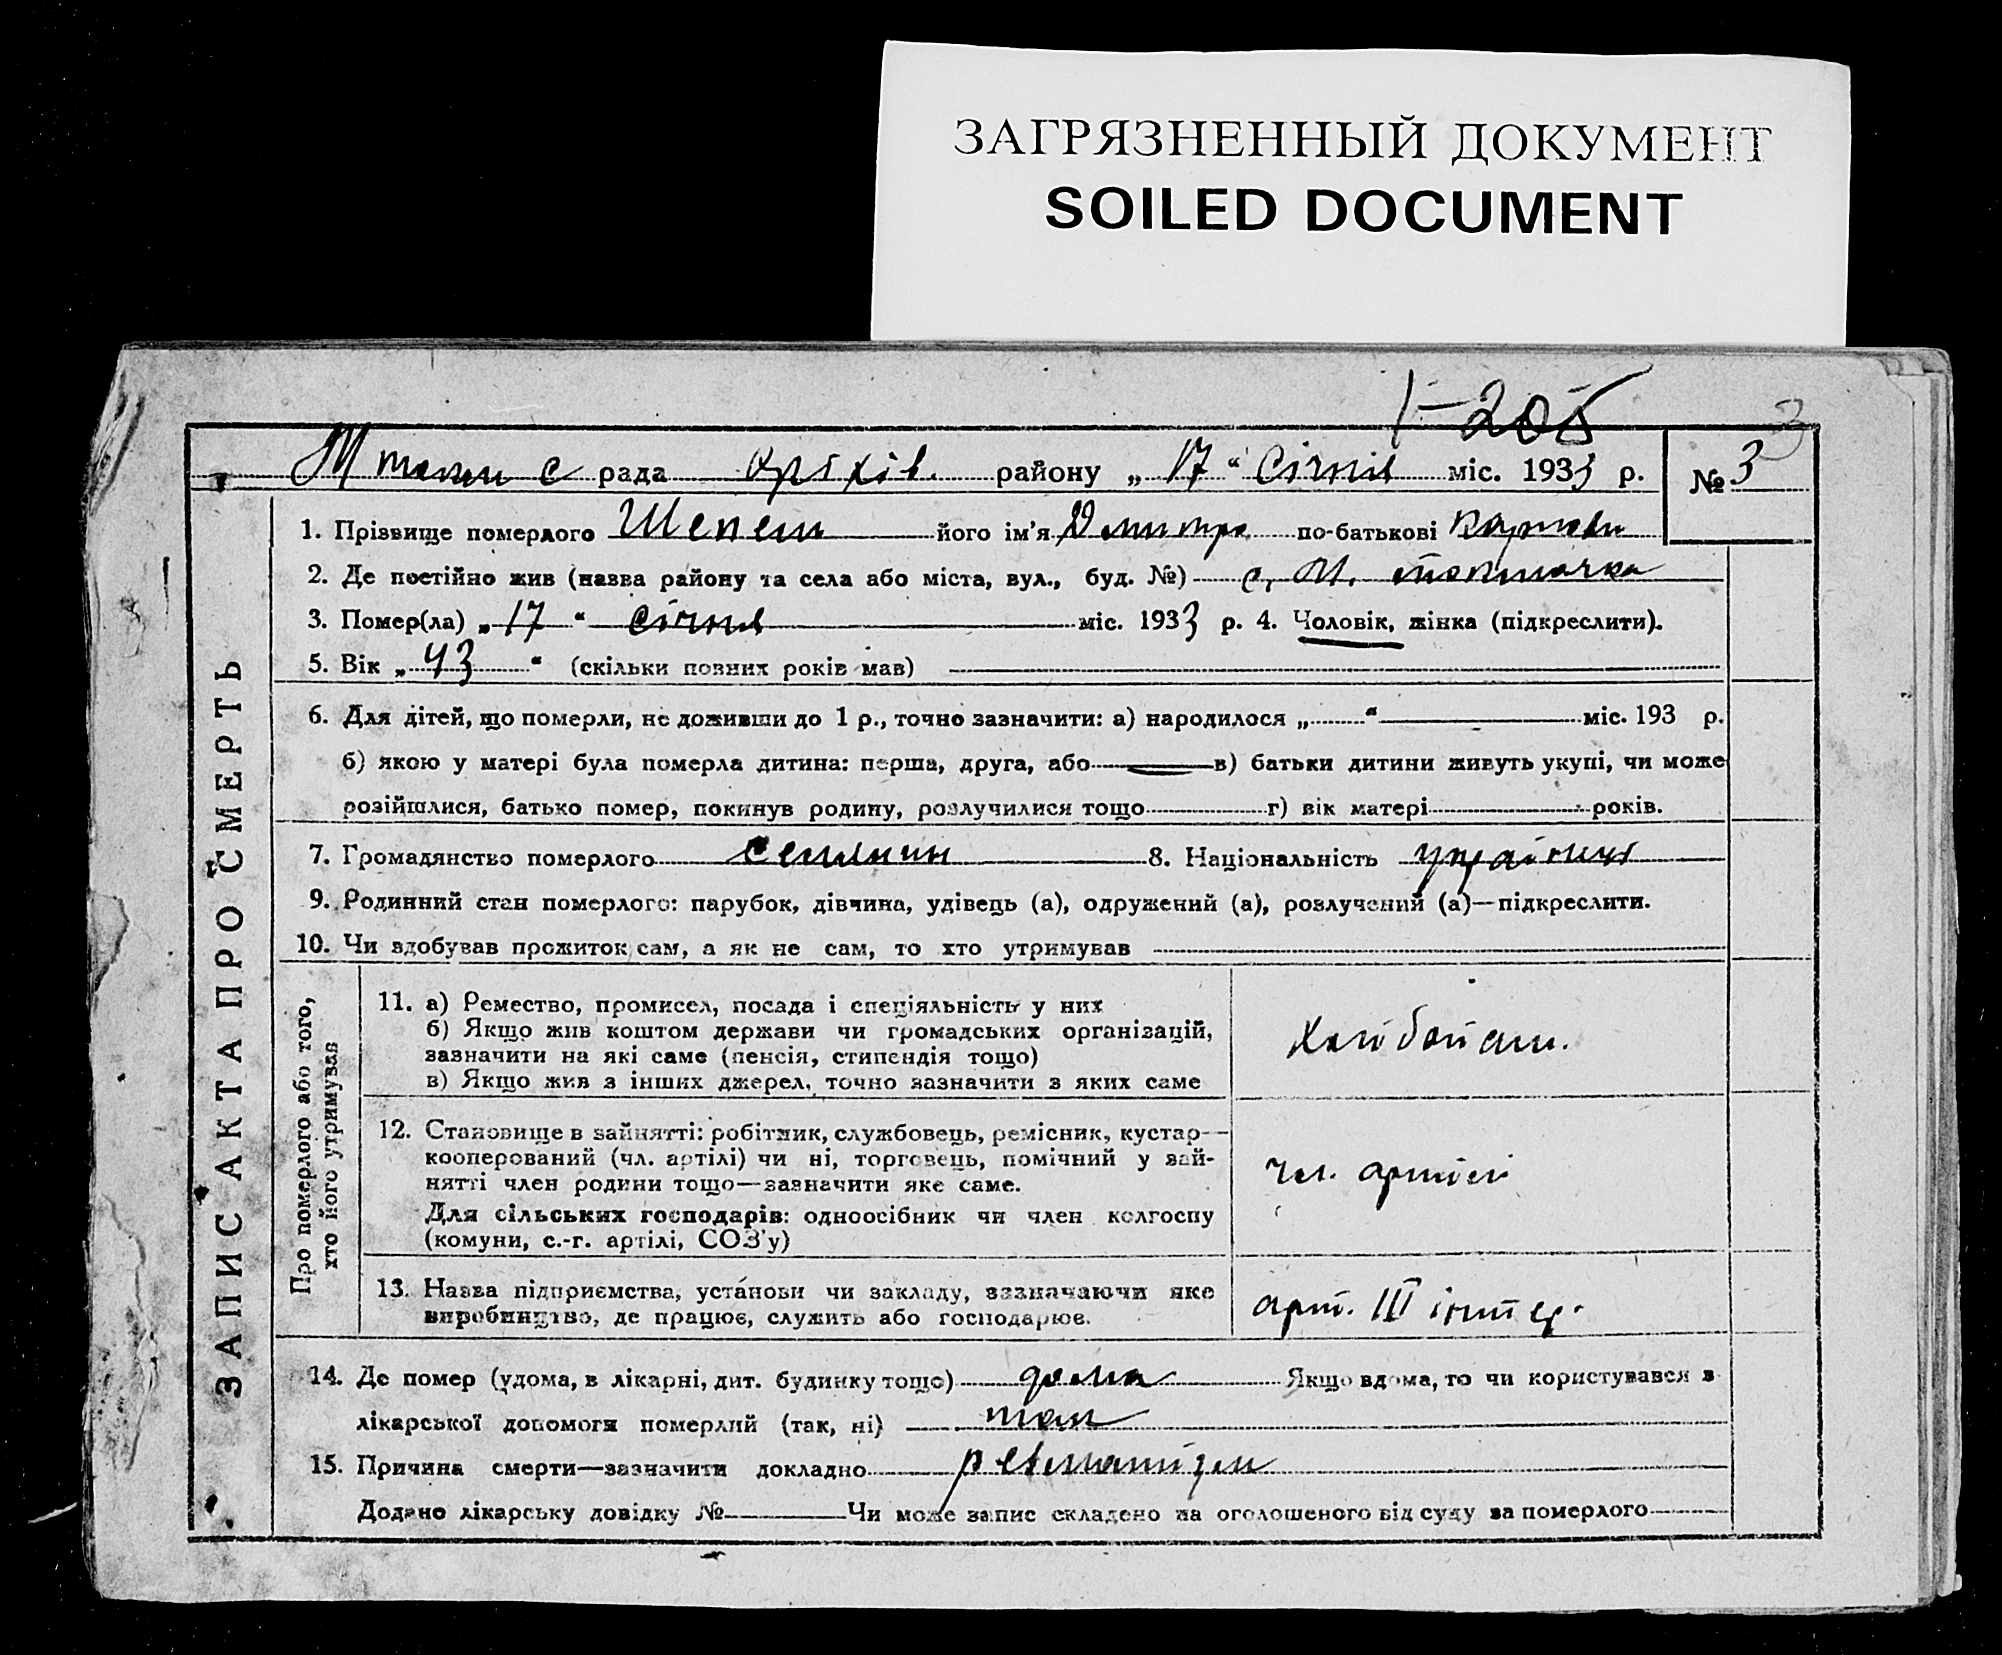 ЗАГРЯЗНЕННЫЙ ДОКУМЕНТ
SOILED DOCUMENT
1-205
3
рада оріхів. району „17“ Січня міс. 1933 р. № 3
ЗАПИС АКТА ПРО СМЕРТЬ
1. Прізвище померлого Шепель його ім'я Дмитро по-батькові
2. Де постійно жив (назва району та села або міста, вул., буд. №) с. М. токмачка
3. Помер(ла) „17“ січня міс. 1933 р. 4. Чоловік, жінка (підкреслити).
5. Вік „43“ (скільки повних років мав)
6. Для дітей, що померли, не доживши до 1 р., точно зазначити: а) народилося „ “ міс. 193 р.
б) якою у матері була померла дитина: перша, друга, або в) батьки дитини живуть укупі, чи може
розійшлися, батько помер, покинув родину, розлучилися тощо г) вік матері років.
7. Громадянство померлого 8. Національність україниц
9. Родинний стан померлого: парубок, дівчина, удівець (а), одружений (а), розлучений (а)—підкреслити.
10. Чи здобував прожиток сам, а як не сам, то хто утримував
Про померлого або того,
хто його утримував
11. а) Ремество, промисел, посада і спеціяльність у них
б) Якщо жив коштом держави чи громадських організацій,
зазначити на які саме (пенсія, стипендія тощо)
в) Якщо жив з інших джерел, точно зазначити з яких саме
12. Становище в зайнятті: робітник, службовець, ремісник, кустар—
кооперований (чл. артілі) чи ні, торговець, помічний у зай-
нятті член родини тощо—зазначити яке саме.
Для сільських господарів: одноосібник чи член колгоспу
(комуни, с.-г. артілі, СОЗ'у)
чл. артілі
13. Назва підприємства, установи чи закладу, зазначаючи яке
виробництво, де працює, служить або господарює.
арт. III інтер.
14. Де помер (удома, в лікарні, дит. будинку тощо) дома Якщо вдома, то чи користувався з
лікарської допомоги померлий (так, ні) так
15. Причина смерти—зазначити докладно ревматизм
Додано лікарську довідку № Чи може запис складено на оголошеного від суду за померлого